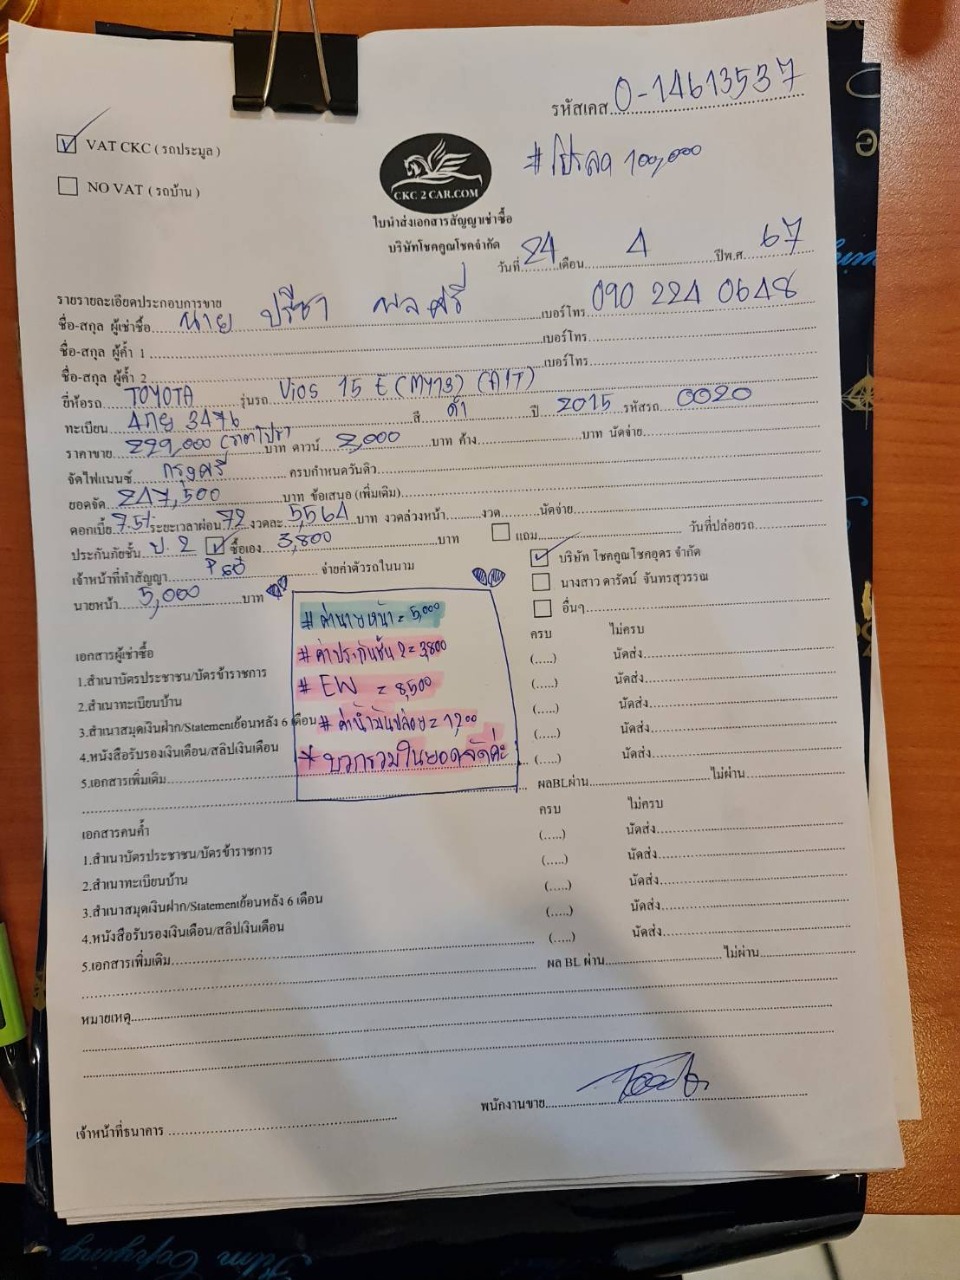 รหัสเคส 0-14613537
VAT CKC ( รถประมูล )
# โปรลด 100,000
NO VAT ( รถบ้าน )
CKC 2 CAR.COM
ใบนำส่งเอกสารสัญญาเช่าซื้อ
บริษัทโชคคูณโชคจำกัด
วันที่ 24 เดือน 4 ปีพ.ศ. 67
รายรายละเอียดประกอบการขาย
ชื่อ-สกุล ผู้เช่าซื้อ นาย ปรีชา พลศรี เบอร์โทร 090 224 0648
ชื่อ-สกุล ผู้ค้ำ 1 เบอร์โทร
ชื่อ-สกุล ผู้ค้ำ 2 เบอร์โทร
ยี่ห้อรถ TOYOTA รุ่นรถ Vios 15 E (MY13) (A/T)
ทะเบียน 4กย 3476 สี ดำ ปี 2015 รหัสรถ 0020
ราคาขาย 229,000 (ราคาโปรฯ บาท ดาวน์ 2,000 บาท ค้าง บาท นัดจ่าย
จัดไฟแนนซ์ กรุงศรี ครบกำหนดวันดิว
ยอดจัด 247,500 บาท ข้อเสนอ (เพิ่มเติม)
ดอกเบี้ย 7.5% ระยะเวลาผ่อน 72 งวดละ 5,564 บาท งวดล่วงหน้า งวด นัดจ่าย
ประกันภัยชั้น ป. 2 ซื้อเอง 3,800 บาท แถม วันที่ปล่อยรถ
เจ้าหน้าที่ทำสัญญา จ่ายค่าตัวรถในนาม บริษัท โชคคูณโชคอุดร จำกัด
นายหน้า 5,000 บาท นางสาว ดารัตน์ จันทรสุวรรณ
อื่นๆ
# ค่านายหน้า = 5,000
# ค่าประกันชั้น 2 = 3,800
# EW = 8,500
# ค่าน้ำมันปล่อย = 1,200
* บวกรวมในยอดจัดค่ะ
เอกสารผู้เช่าซื้อ ครบ ไม่ครบ
1.สำเนาบัตรประชาชน/บัตรข้าราชการ (.....) นัดส่ง
2.สำเนาทะเบียนบ้าน (.....) นัดส่ง
3.สำเนาสมุดเงินฝาก/Statementย้อนหลัง 6 เดือน (.....) นัดส่ง
4.หนังสือรับรองเงินเดือน/สลิปเงินเดือน (.....) นัดส่ง
5.เอกสารเพิ่มเติม (.....) นัดส่ง
ผลBLผ่าน ไม่ผ่าน
เอกสารคนค้ำ ครบ ไม่ครบ
1.สำเนาบัตรประชาชน/บัตรข้าราชการ (.....) นัดส่ง
2.สำเนาทะเบียนบ้าน (.....) นัดส่ง
3.สำเนาสมุดเงินฝาก/Statementย้อนหลัง 6 เดือน (.....) นัดส่ง
4.หนังสือรับรองเงินเดือน/สลิปเงินเดือน (.....) นัดส่ง
5.เอกสารเพิ่มเติม (.....) นัดส่ง
ผล BL ผ่าน ไม่ผ่าน
หมายเหตุ
พนักงานขาย
เจ้าหน้าที่ธนาคาร